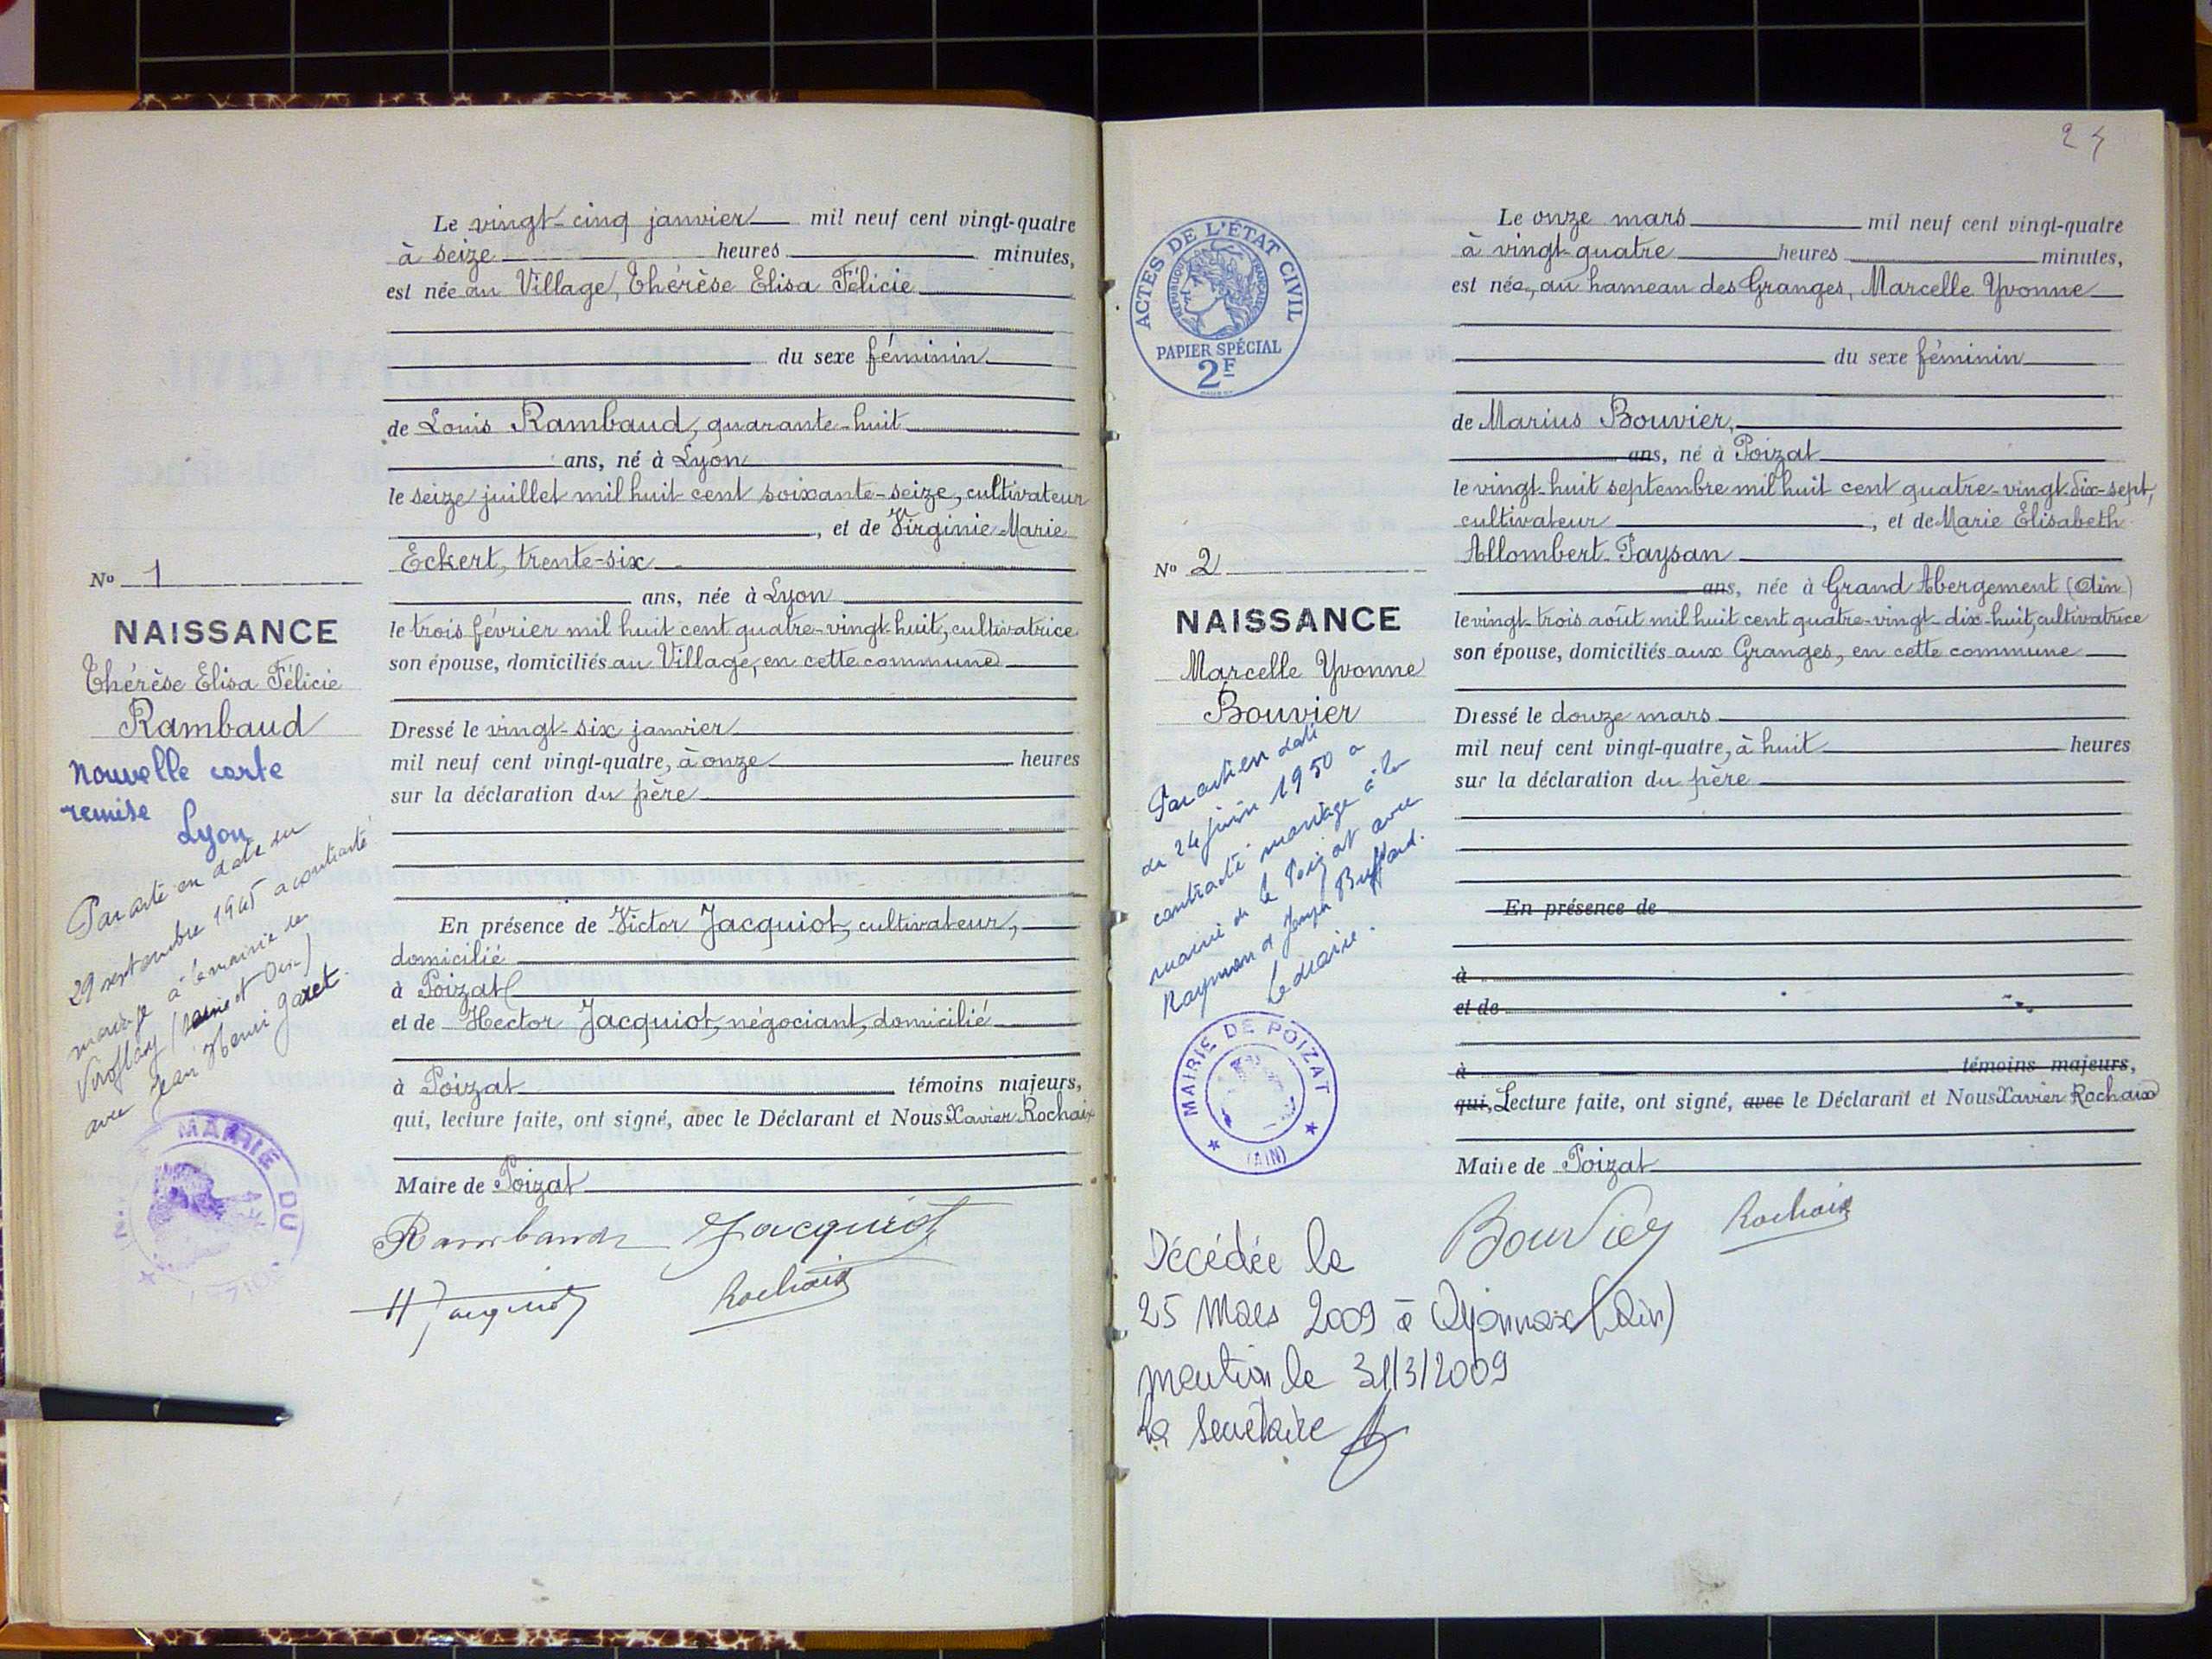 Le vingt-cinq janvier mil neuf cent vingt-quatre
à seize heures minutes,
est née au Village, Thérèse Elisa Félicie
du sexe féminin
de Louis Rambaud, quarante-huit
ans, né à Lyon
le seize juillet mil huit cent soixante-seize, cultivateur
, et de Virginie Marie
Eckert, trente-six
ans, née à Lyon
le trois février mil huit cent quatre-vingt-huit, cultivatrice
son épouse, domiciliés au Village, en cette commune
Dressé le vingt-six janvier
mil neuf cent vingt-quatre, à onze heures
sur la déclaration du père
En présence de Victor Jacquiot, cultivateur,
domicilié
à Poizat
et de Hector Jacquiot, négociant, domicilié
à Poizat témoins majeurs,
qui, lecture faite, ont signé, avec le Déclarant et Nous Xavier Rochaix
Maire de Poizat
Rambaud Jacquiot
H Jacquiot Rochaix
No 1
NAISSANCE
Thérèse Elisa Félicie
Rambaud
Nouvelle carte
remise
Lyon
Par acte en date du
29 septembre 1945 a contracté
mariage à la mairie de
Viroflay (Seine et Oise)
avec Jean Henri Garet.
MAIRIE DU
24
Le onze mars mil neuf cent vingt-quatre
à vingt-quatre heures minutes,
est née, au hameau des Granges, Marcelle Yvonne
du sexe féminin
de Marius Bouvier,
ans, né à Poizat
le vingt-huit septembre mil huit cent quatre-vingt-dix-sept,
cultivateur , et de Marie Elisabeth
Allombert-Paysan
ans, née à Grand Abergement (Ain)
le vingt-trois août mil huit cent quatre-vingt-dix-huit, cultivatrice
son épouse, domiciliés aux Granges, en cette commune
Dressé le douze mars
mil neuf cent vingt-quatre, à huit heures
sur la déclaration du père
En présence de
à
et de
à témoins majeurs,
qui, Lecture faite, ont signé, avec le Déclarant et Nous Xavier Rochaix
Maire de Poizat
Bouvier Rochaix
ACTES DE L'ÉTAT CIVIL
RÉPUBLIQUE FRANÇAISE
PAPIER SPÉCIAL
2F
No 2
NAISSANCE
Marcelle Yvonne
Bouvier
Par acte en date
du 24 juin 1950 a
contracté mariage à la
mairie de le Poizat avec
Raymond Joseph Buffard.
Le Maire.
MAIRIE DE POIZAT
(AIN)
Décédée le
25 Mars 2009 à Oyonnax (Ain)
mention le 31/3/2009
La Secrétaire